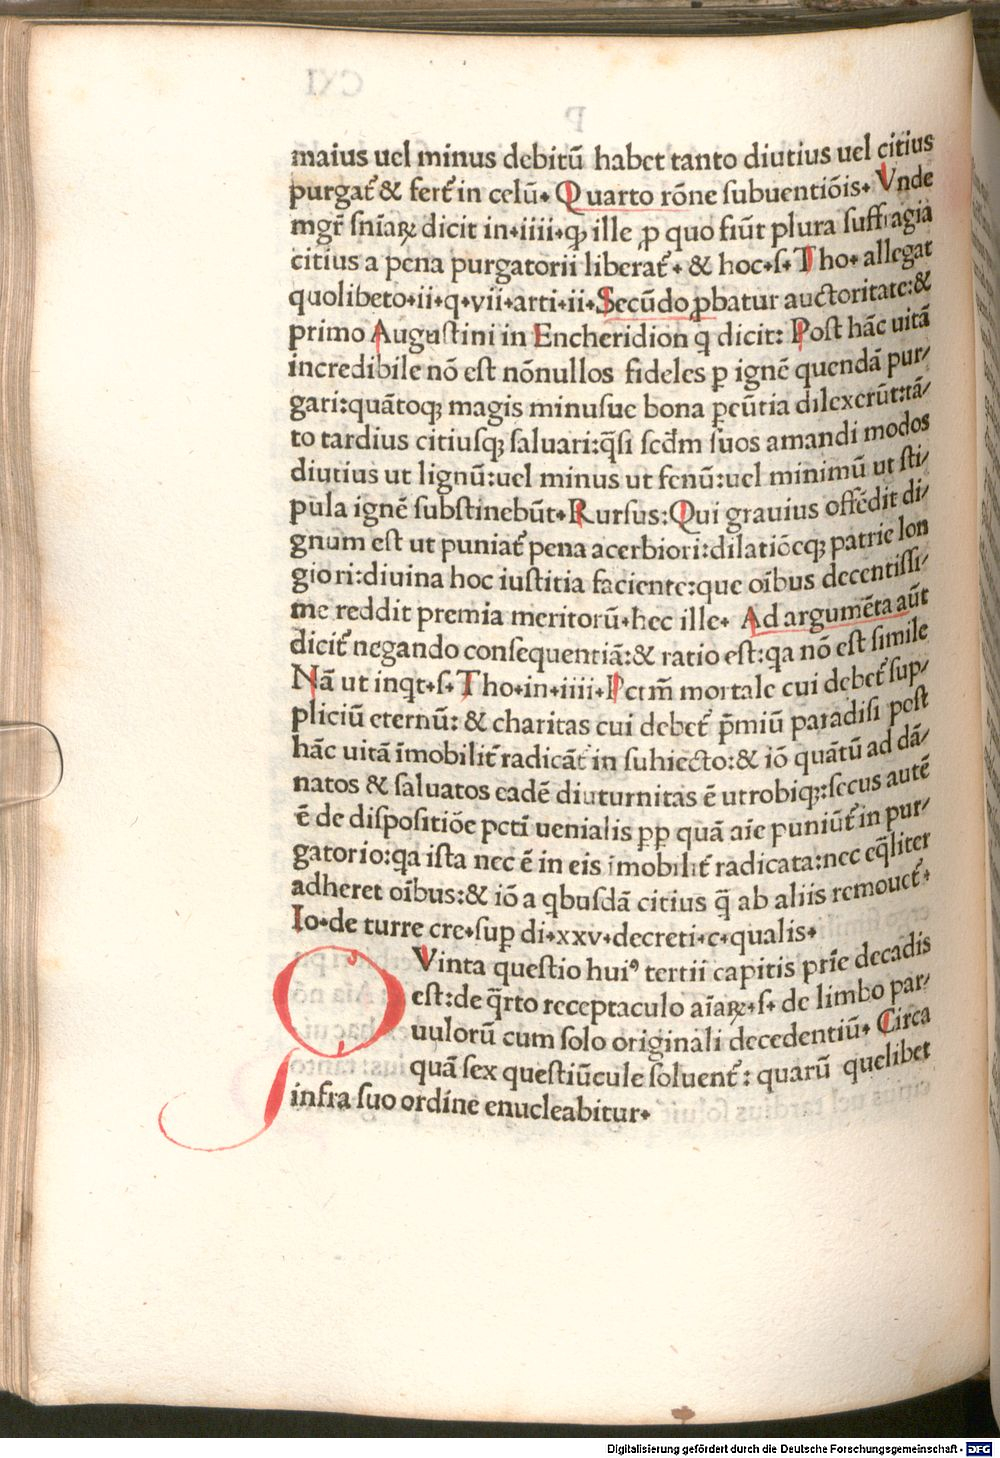 maius uel minus debitū habet tanto diutius uel citius
purgat᷑ & fert᷑ in celū. Quarto rōne ſubuentiōis. Vnde
mgr̄ ſnīaꝝ dicit in.iiii.ꝙ ille ꝓ quo fiūt plura ſuffragia
citius a pena purgatorii liberat᷑. & hoc.ſ.Tho. allegat
quolibeto.ii.q.vii.arti.ii. Secūdo ꝓbatur auctoritate:&
primo Auguſtini in Encheridion q̇ dicit: Poſt hāc uitā
incredibile nō eſt nōnullos fideles ꝑ ignē quendā pur/
gari:quātoqꝫ magis minuſue bona ꝑeūtia dilexerūt:tā/
to tardius citiuſqꝫ ſaluari:q̄ſi ſcd̄m ſuos amandi modos
diutius ut lignū:uel minus ut fenū:uel minimū ut ſti/
pula ignē ſubſtinebūt. Rurſus: Qui grauius offēdit di/
gnum eſt ut puniat᷑ pena acerbiori:dilatiōeqꝫ patrie lon
giori:diuina hoc iuſtitia faciente:que oībus decentiſſi/
me reddit premia meritorū.hec ille. Ad argumēta aūt
dicit᷑ negando conſequentiā:& ratio eſt:qa nō eſt ſimile
Nā ut inqt.ſ.Tho.in.iiii.Petm̄ mortale cui debet᷑ ſup/
pliciū eternū: & charitas cui debet᷑ p̄miū paradiſi poſt
hāc uitā īmobilit᷑ radicāt᷑ in ſuhiecto:& iō quātū ad dā/
natos & ſaluatos eadē diuturnitas ē utrobiqꝫ:ſecus autē
ē de diſpoſitiōe pcti uenialis ꝓp quā aīe puniūt᷑ in pur/
gatorio:qa iſta nec ē in eis īmobilit᷑ radicata:nec eq̄liter
adheret oībus:& iō a qbuſdā citius q̄ ab aliis remouet᷑.
Io.de turre cre.ſuꝑ di.xxv.decreti.c.qualis.
QVinta queſtio huiꝰ tertii capitis prīe decadis
eſt:de q̄rto receptaculo aīaꝝ.ſ. de limbo par/
uulorū cum ſolo originali decedentiū. Circa
quā ſex queſtiūcule ſoluent᷑: quarū quelibet
infra ſuo ordine enucleabitur.
Digitalisierung gefördert durch die Deutsche Forschungsgemeinschaft - DFG